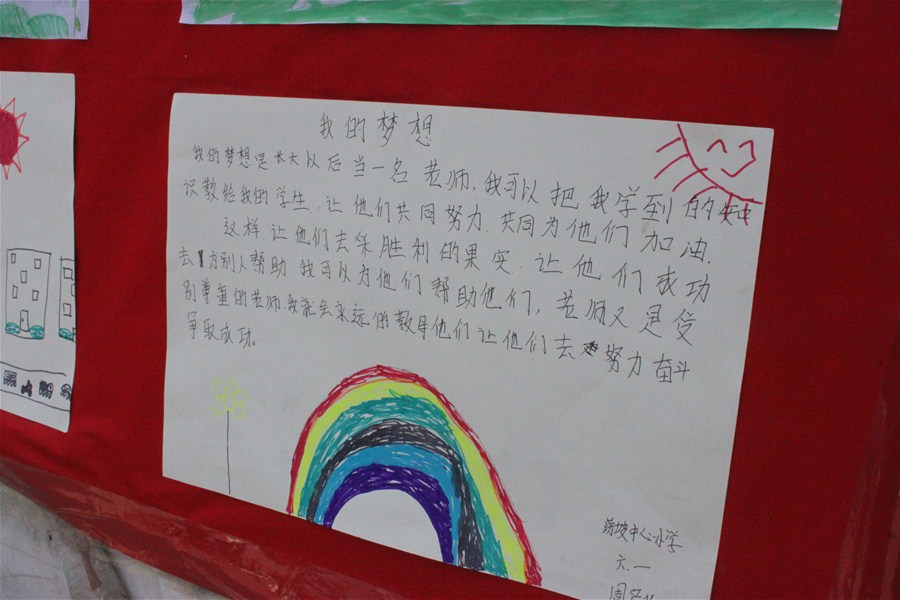 我的梦想
我的梦想是长大以后当一名老师,我可以把我学到的知
识教给我的学生.让他们共同努力.共同为他们加油.
这样让他们去采胜利的果实.让他们成功
去 别人帮助 我可以为他们帮助他们,老师又是受
别尊重的老师.我就会永远的教导他们让他们去 努力奋斗
争取成功。
荡坡中心小学
六.一
周